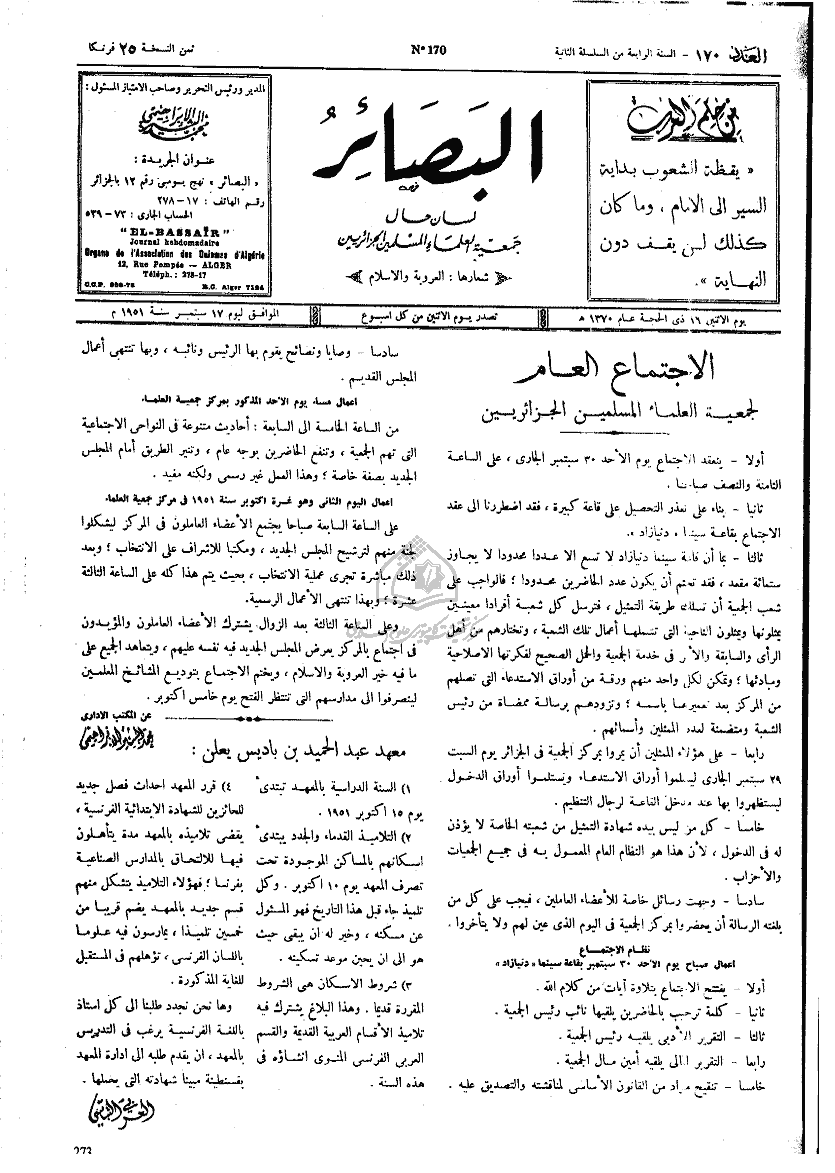 العدد ١٧٠ - السنة الرابعة من السلسلة الثانية
Nº 170
ثمن النسخة ٢٥ فرنكا
من حكم العرب
« يقظة الشعوب بداية
السير الى الامام ، وما كان
كذلك لن يقف دون
النهاية » .
البصائر
لسان حال
جمعية العلماء المسلمين الجزائريين
شعارها : العروبة والاسلام
المدير ورئيس التحرير وصاحب الامتياز المسئول :
محمد البشير الابراهيمي
عنوان الجريدة :
« البصائر » نهج بومبى رقم ١٢ بالجزائر
رقم الهاتف : ١٧-٢٧٨
الحساب الجارى : ٧٣-٥٣٩
"EL-BASSAIR"
Journal hebdomadaire
Organe de l'Association des Oulamas d'Algérie
12, Rue Pompée - ALGER
Téléph. : 278-17
C.C.P.
R.C. Alger
يوم الاثنين ١٦ ذى الحجة عام ١٣٧٠ ه
تصدر يوم الاثنين من كل اسبوع
الموافق ليوم ١٧ سبتمبر سنة ١٩٥١ م
الاجتماع العام
لجمعية العلماء المسلمين الجزائريين
أولا - ينعقد الاجتماع يوم الأحد ٣٠ سبتمبر الجارى ، على الساعة
الثامنة والنصف صباحا .
ثانيا - بناء على تعذر التحصيل على قاعة كبيرة ، فقد اضطررنا الى عقد
الاجتماع بقاعة سينما « دنيازاد » .
ثالثا - بما أن قاعة سينما دنيازاد لا تسع الا عددا محدودا لا يجاوز
ستمائة مقعد ، فقد تحتم أن يكون عدد الحاضرين محدودا ؛ فالواجب على
شعب الجمعية أن تسلك طريقة التمثيل ، فترسل كل شعبة أفرادا معينين
يمثلونها ويمثلون الناحية التى تشملها أعمال تلك الشعبة ، وتختارهم من أهل
الرأى والسابقة والأثر فى خدمة الجمعية والحمل الصحيح لفكرتها الاصلاحية
ومبادئها ؛ وتمكن لكل واحد منهم ورقة من أوراق الاستدعاء التى تصلهم
من المركز بعد تعميرها باسمه ؛ وتزودهم برسالة ممضاة من رئيس
الشعبة ومتضمنة لعدد الممثلين وأسمائهم .
رابعا - على هؤلاء الممثلين أن يمروا بمركز الجمعية فى الجزائر يوم السبت
٢٩ سبتمبر الجارى ليسلموا أوراق الاستدعاء ويتسلموا أوراق الدخول
ليستظهروا بها عند مدخل القاعة لرجال التنظيم .
خامسا - كل من ليس بيده شهادة التمثيل من شعبته الخاصة لا يؤذن
له فى الدخول ، لأن هذا هو النظام العام المعمول به فى جميع الجمعيات
والأحزاب .
سادسا - وجهت رسائل خاصة للأعضاء العاملين ، فيجب على كل من
بلغته الرسالة أن يحضروا بمركز الجمعية فى اليوم الذى عين لهم ولا يتأخروا .
نظام الاجتماع
اعمال صباح يوم الاحد ٣٠ سبتمبر بقاعة سينما « دنيازاد »
أولا - يفتتح الاجتماع بتلاوة آيات من كلام الله .
ثانيا - كلمة ترحيب بالحاضرين يلقيها نائب رئيس الجمعية .
ثالثا - التقرير الأدبى يلقيه رئيس الجمعية .
رابعا - التقرير المالى يلقيه أمين مال الجمعية .
خامسا - تنقيح مواد من القانون الأساسى لمناقشته والتصديق عليه .
سادسا - وصايا ونصائح يقوم بها الرئيس ونائبه ، وبها تنتهى أعمال
المجلس القديم .
اعمال مساء يوم الاحد المذكور بمركز جمعية العلماء
من الساعة الخامسة الى السابعة : أحاديث متنوعة فى النواحى الاجتماعية
التى تهم الجمعية ، وتنفع الحاضرين بوجه عام ، وتنير الطريق أمام المجلس
الجديد بصفة خاصة ؛ وهذا العمل غير رسمى ولكنه مفيد .
اعمال اليوم الثانى وهو غرة اكتوبر سنة ١٩٥١ فى مركز جمعية العلماء
على الساعة السابعة صباحا يجتمع الأعضاء العاملون فى المركز ليشكلوا
لجنة منهم لترشيح المجلس الجديد ، ومكتبا للاشراف على الانتخاب ؛ وبعد
ذلك مباشرة تجرى عملية الانتخاب ، بحيث يتم هذا كله على الساعة الثالثة
عشرة ؛ وبهذا تنتهى الأعمال الرسمية .
وعلى الساعة الثالثة بعد الزوال يشترك الأعضاء العاملون والمؤيدون
فى اجتماع بالمركز يعرض المجلس الجديد فيه نفسه عليهم ، ويتعاهد الجميع على
ما فيه خير العروبة والاسلام ، ويختم الاجتماع بتوديع المشائخ المعلمين
لينصرفوا الى مدارسهم التى تنتظر الفتح يوم خامس اكتوبر .
عن المكتب الادارى
محمد البشير الابراهيمي
معهد عبد الحميد بن باديس يعلن :
١) السنة الدراسية بالمعهد تبتدىء
يوم ١٥ اكتوبر ١٩٥١ .
٢) التلاميذ القدماء والجدد يبتدىء
اسكانهم بالمساكن الموجودة تحت
تصرف المعهد يوم ١٠ اكتوبر . وكل
تلميذ جاء قبل هذا التاريخ فهو المسئول
عن مسكنه ، وخير له ان يبقى حيث
هو الى ان يحين موعد تسكينه .
٣) شروط الاسكان هى الشروط
المقررة قديما . وهذا البلاغ يشترك فيه
تلاميذ الأقسام العربية القديمة والقسم
العربى الفرنسى المنوى انشاؤه فى
هذه السنة .
٤) قرر المعهد احداث فصل جديد
للحائزين للشهادة الابتدائية الفرنسية ،
يقضى تلاميذه بالمعهد مدة يتأهلون
فيها للالتحاق بالمدارس الصناعية
بفرنسا ؛ فهؤلاء التلاميذ يتشكل منهم
قسم جديد بالمعهد يضم قريبا من
خمسين تلميذا ، يمارسون فيه علوما
باللسان الفرنسى ، تؤهلهم فى المستقبل
للغاية المذكورة .
وها نحن نجدد طلبنا الى كل استاذ
باللغة الفرنسية يرغب فى التدريس
بالمعهد ، ان يقدم طلبه الى ادارة المعهد
بقسنطينة مبينا شهادته التى يحملها .
العربي التبسي
273